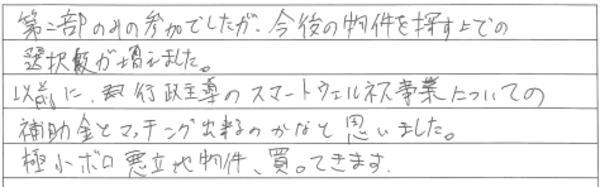 第二部のみの参加でしたが、今後の物件を探す上での
選択肢が増えました。
以前に、行政主導のスマートウェルネス事業についての
補助金とマッチング出来るのかなと思いました。
極小ボロ悪立地物件、買ってきます。